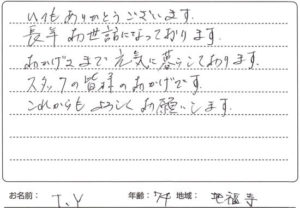 いつもありがとうございます。
長年お世話になっております。
おかげさまで元気に暮らしております。
スタッフの皆様のおかげです。
これからもよろしくお願いします。
お名前： T.Y 年齢： 74 地域： 地福寺